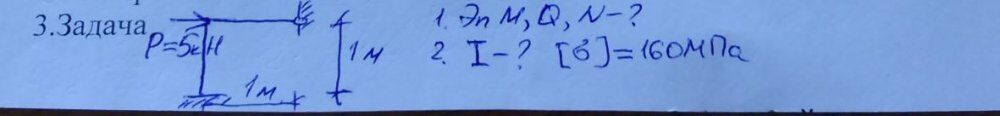 3.Задача
P=5кН
1м
1м
1. Эп М, Q, N-?
2. I-? [б]=160МПа